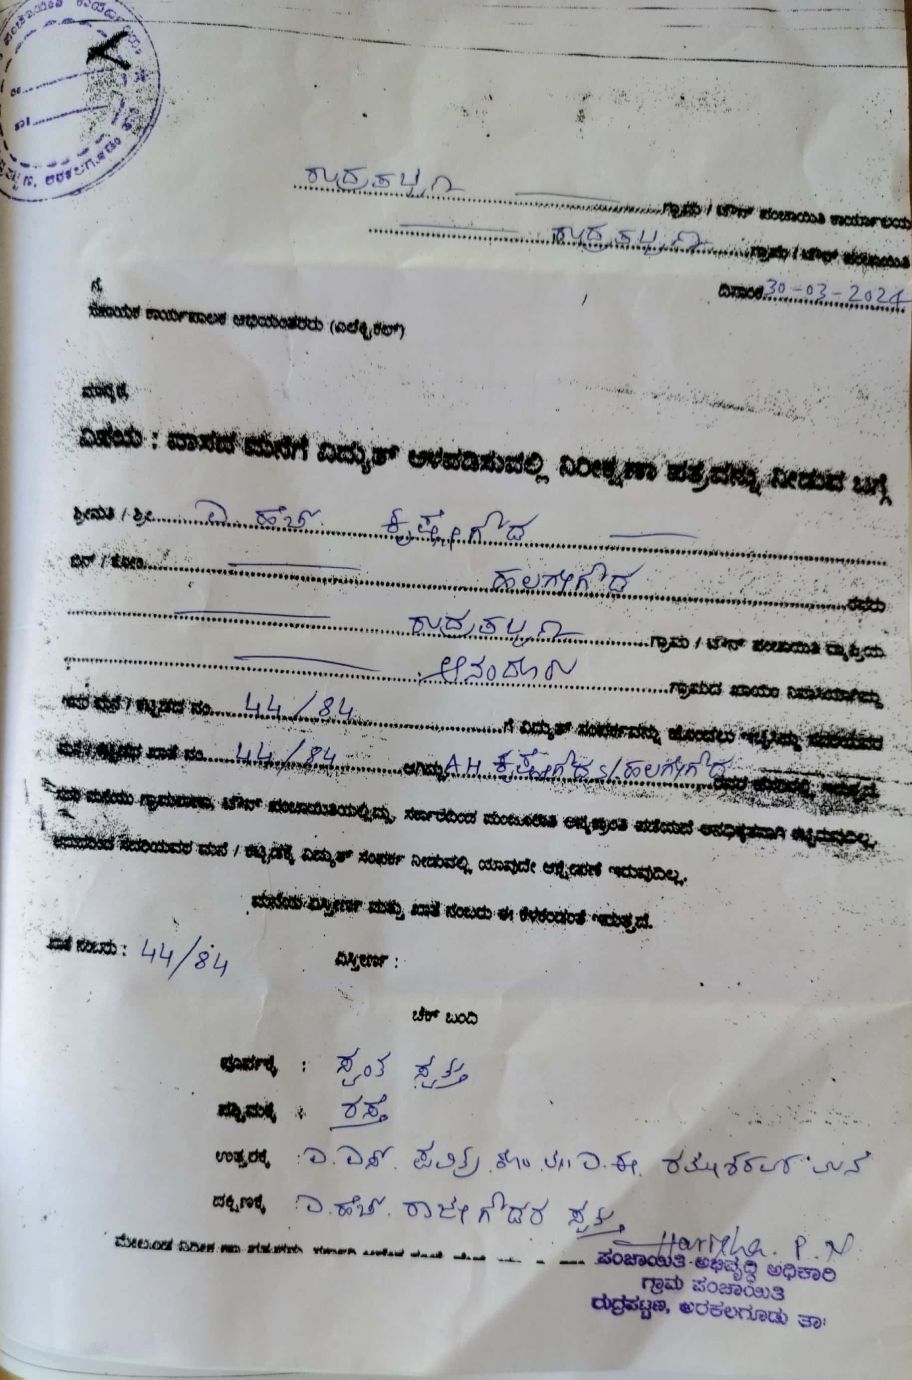 ರುದ್ರಪಟ್ಟಣ ಗ್ರಾಮ / ಟೌನ್ ಪಂಚಾಯಿತಿ ಕಾರ್ಯಾಲಯ
ರುದ್ರಪಟ್ಟಣ ಗ್ರಾಮ / ಟೌನ್ ಪಂಚಾಯಿತಿ
ದಿನಾಂಕ 30-03-2024
ಗೆ,
ಸಹಾಯಕ ಕಾರ್ಯಪಾಲಕ ಅಭಿಯಂತರರು (ಎಲೆಕ್ಟ್ರಿಕಲ್)
ಮಾನ್ಯರೆ,
ವಿಷಯ : ವಾಸದ ಮನೆಗೆ ವಿದ್ಯುತ್ ಅಳವಡಿಸುವಲ್ಲಿ ನಿರೀಕ್ಷಣಾ ಪತ್ರವನ್ನು ನೀಡುವ ಬಗ್ಗೆ
ಶ್ರೀಮತಿ / ಶ್ರೀ ಎ. ಹೆಚ್. ಕೃಷ್ಣೇಗೌಡ
ಬಿನ್ / ಕೋಂ ಹಲಗೇಗೌಡ ರವರು
ರುದ್ರಪಟ್ಟಣ ಗ್ರಾಮ / ಟೌನ್ ಪಂಚಾಯಿತಿ ವ್ಯಾಪ್ತಿಯ
ಗ್ರಾಮದ ಖಾಯಂ ನಿವಾಸಿಯಾಗಿದ್ದು
ಇವರ ಮನೆ / ಕಟ್ಟಡದ ನಂ. 44/84 ಗೆ ವಿದ್ಯುತ್ ಸಂಪರ್ಕವನ್ನು ಹೊಂದಲು ಇಚ್ಛಿಸಿದ್ದು ಸದರಿಯವರ
ಮನೆ / ಕಟ್ಟಡದ ಖಾತೆ ನಂ. 44/84 ಆಗಿದ್ದು AH ಕೃಷ್ಣೇಗೌಡ s/ ಹಲಗೇಗೌಡ ರವರ ಹೆಸರಿನಲ್ಲಿ ಇರುತ್ತದೆ.
ಸದರಿ ಮನೆಯು ಗ್ರಾಮಠಾಣಾ, ಟೌನ್ ಪಂಚಾಯಿತಿಯಲ್ಲಿದ್ದು, ಸರ್ಕಾರದಿಂದ ಮಂಜೂರಾತಿ ಪಡೆಯದೆ ಅನಧಿಕೃತವಾಗಿ ಕಟ್ಟಿರುವುದಿಲ್ಲ.
ಆದುದರಿಂದ ಸದರಿಯವರ ಮನೆ / ಕಟ್ಟಡಕ್ಕೆ ವಿದ್ಯುತ್ ಸಂಪರ್ಕ ನೀಡುವಲ್ಲಿ ಯಾವುದೇ ಆಕ್ಷೇಪಣೆ ಇರುವುದಿಲ್ಲ.
ಮನೆಯ ವಿಸ್ತೀರ್ಣ ಮತ್ತು ಖಾತೆ ನಂಬರು ಈ ಕೆಳಕಂಡಂತೆ ಇರುತ್ತದೆ.
ಖಾತೆ ನಂಬರು : 44/84 ವಿಸ್ತೀರ್ಣ :
ಚೆಕ್ ಬಂದಿ
ಪೂರ್ವಕ್ಕೆ : ಸ್ವಂತ ಸ್ವತ್ತು
ಪಶ್ಚಿಮಕ್ಕೆ : ರಸ್ತೆ
ಉತ್ತರಕ್ಕೆ : ಎ.ಎಸ್.
ದಕ್ಷಿಣಕ್ಕೆ : ಎ.ಹೆಚ್. ರಾಜೇಗೌಡರ ಸ್ವತ್ತು
Harisha. P. N
ಪಂಚಾಯಿತಿ ಅಭಿವೃದ್ಧಿ ಅಧಿಕಾರಿ
ಗ್ರಾಮ ಪಂಚಾಯಿತಿ
ರುದ್ರಪಟ್ಟಣ, ಅರಕಲಗೂಡು ತಾ: